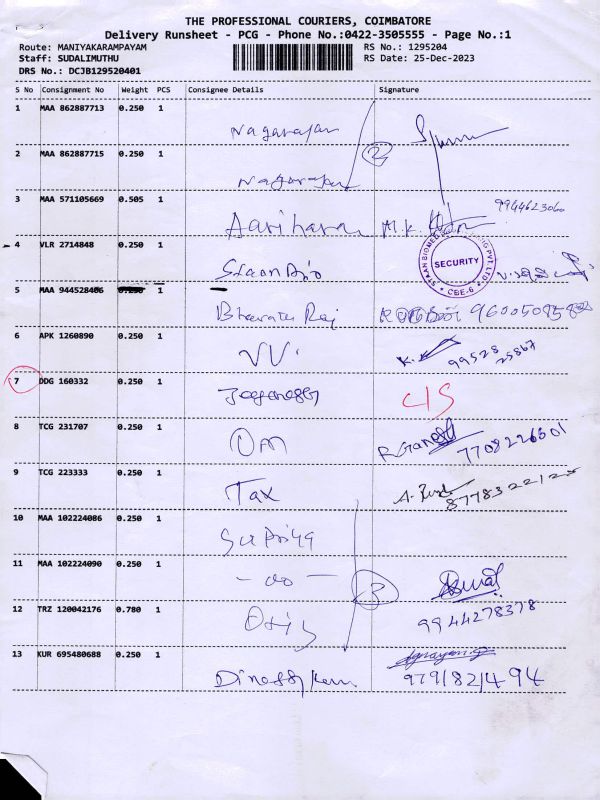 THE PROFESSIONAL COURIERS, COIMBATORE
Delivery Runsheet - PCG - Phone No.:0422-3505555 - Page No.:1
Route: MANIYAKARAMPAYAM RS No.: 1295204
Staff: SUDALIMUTHU RS Date: 25-Dec-2023
DRS No.: DCJB129520401
S No Consignment No Weight PCS Consignee Details Signature
1 MAA 862887713 0.250 1
Nagarajan
2 MAA 862887715 0.250 1
2
Nagarajan
3 MAA 571105669 0.505 1
9944623060
Aariharan M.K.
4 VLR 2714848 0.250 1
SECURITY
CBE-6
5 MAA 944528406 0.250 1
Bharath Raj
6 APK 1260890 0.250 1
VV.
99528
25867
7 DDG 160332 0.250 1
C/S
8 TCG 231707 0.250 1
Om R Ganesh 7708226301
9 TCG 223333 0.250 1
Tax
10 MAA 102224086 0.250 1
Supriya
11 MAA 102224090 0.250 1
- do - 3
12 TRZ 120042176 0.780 1
9944278378
13 KUR 695480688 0.250 1
9791821494